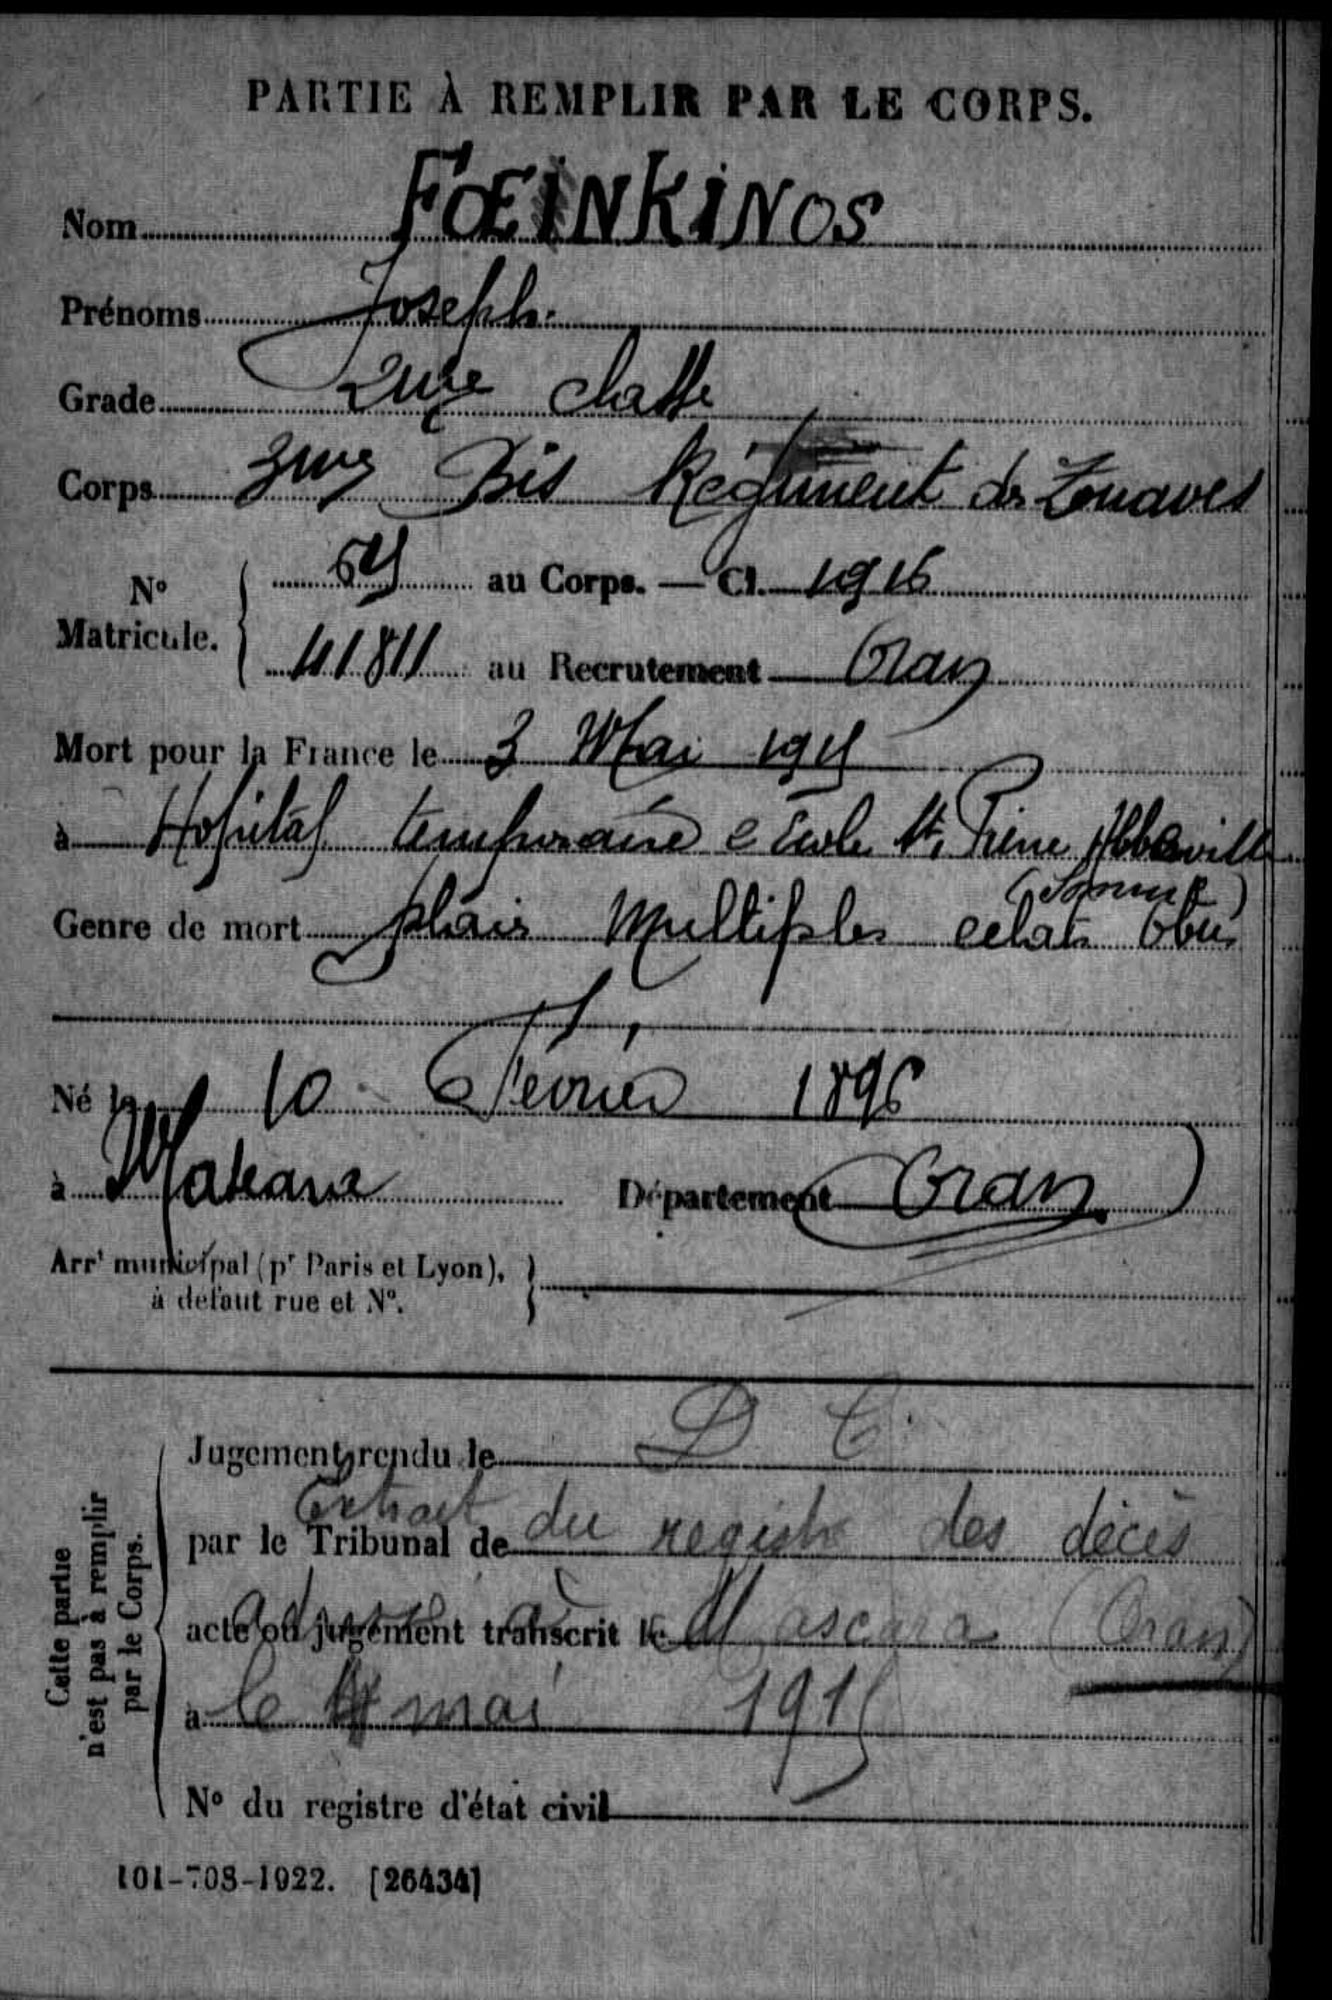 PARTIE À REMPLIR PAR LE CORPS.
Nom FŒINKINOS
Prénoms Joseph.
Grade 2me classe
Corps 3me Bis Régiment de Zouaves
No Matricule. au Corps. — Cl. 1916
41811 au Recrutement Oran
Mort pour la France le 3 Mai 1915
à Hopital temporaire Ecole St Pierre Abbeville
(Somme)
Genre de mort plaies Multiples eclats Obus
Né le 10 Février 1896
à Département Oran
Arrt municipal (pr Paris et Lyon),
à défaut rue et No.
Cette partie
n'est pas à remplir
par le Corps.
D C
Jugement rendu le
Extrait du registre des décès
par le Tribunal de
adressé à Mascara (Oran)
acte ou jugement transcrit le
à le mai 1915
No du registre d'état civil
101-708-1922. [26434]